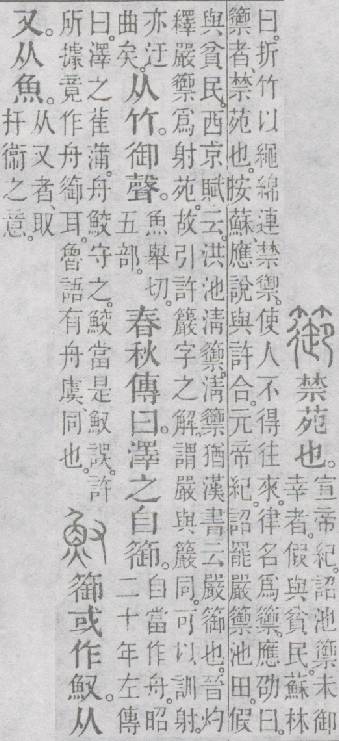 禁苑也。
宣帝紀。詔池籞未御
幸者。假與貧民。蘇林
曰。折竹以繩緜連禁禦。使人不得往來。律名爲籞。應劭曰。
籞者、禁苑也。按蘇應說與許合。元帝紀。詔罷嚴籞池田。假
與貧民。西京賦云。洪池淸籞。淸籞猶漢書云嚴篽也。晉灼
釋嚴籞爲射苑。故引許字之解。謂嚴與同。可以訓射。
亦迂
曲矣。
从竹。御聲。
魚舉切。
五部。
春秋傳曰。澤之自篽。
自當作舟。昭
二十年左傳
曰。澤之萑蒲。舟鮫守之。鮫當是䱷誤。許
所據竟作舟篽耳。魯語有舟虞同也。
篽或作䱷。从
又从魚。
从又者、取
扞衞之意。